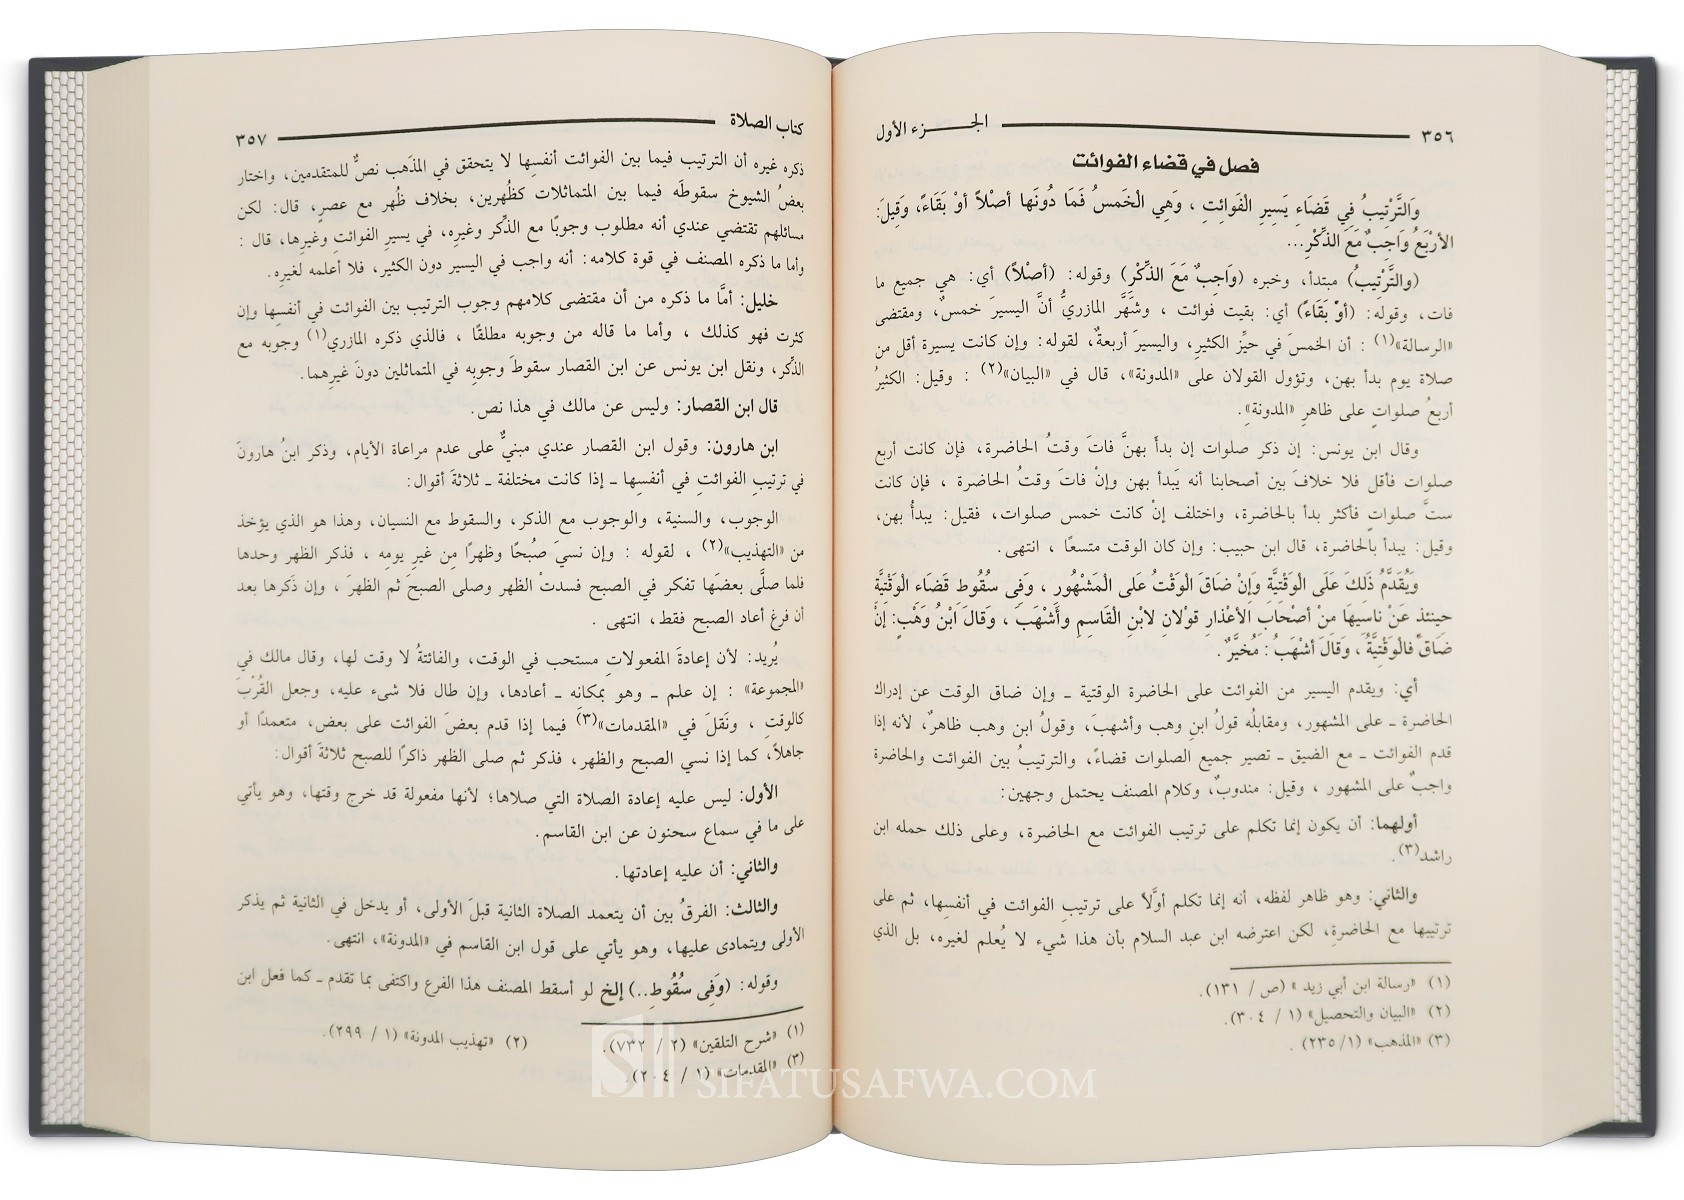 ٣٥٦ الجـــزء الأول
فصل في قضاء الفوائت
وَالتَّرْتِيبُ فِي قَضَاءِ يَسِيرِ الْفَوَائِتِ ، وَهِيَ الْخَمسُ فَمَا دُونَها أصْلاً أوْ بَقَاءً، وَقِيلَ:
الأرْبَعُ وَاجِبٌ مَعَ الذِّكْرِ...
(والتَّرْتِيبُ) مبتدأ، وخبره (وَاجِبٌ مَعَ الذِّكْرِ) وقوله: (أصْلاً) أي: هي جميع ما
فات، وقوله: (أوْ بَقَاءً) أي: بقيت فوائت ، وشهَّر المازريُّ أنَّ اليسيرَ خمسٌ، ومقتضى
«الرسالة»(١) : أن الخمسَ في حيِّز الكثيرِ، واليسيرَ أربعةٌ، لقوله: وإن كانت يسيرة أقل من
صلاة يوم بدأ بهن، وتؤول القولان على «المدونة»، قال في «البيان»(٢) : وقيل: الكثيرُ
أربعُ صلواتٍ على ظاهرِ «المدونة».
وقال ابن يونس: إن ذكر صلوات إن بدأ بهنَّ فاتَ وقتُ الحاضرة، فإن كانت أربع
صلوات فأقل فلا خلافَ بين أصحابنا أنه يَبدأ بهن وإنْ فاتَ وقتُ الحاضرة ، فإن كانت
ستَّ صلواتٍ فأكثر بدأ بالحاضرة، واختلف إنْ كانت خمس صلوات، فقيل: يبدأُ بهن،
وقيل: يبدأ بالحاضرة، قال ابن حبيب: وإن كان الوقت متسعًا ، انتهى.
وَيُقَدَّمُ ذَلِكَ عَلَى الْوَقْتِيَّةِ وَإِنْ ضَاقَ الْوَقْتُ عَلَى الْمَشْهُورِ ، وَفِي سُقُوط قَضَاء الْوَقْتِيَّةِ
حينئذ عَنْ نَاسِيهَا مِنْ أصْحَابِ الأعْذَارِ قَوْلانِ لابْنِ الْقَاسِمِ وَأَشْهَبَ ، وَقَالَ ابْنُ وَهْبٍ: إنْ
ضَاقَ فَالْوَقْتِيَّةُ ، وَقَالَ أشْهَبُ : مُخَيَّرٌ .
أي: ويقدم اليسير من الفوائت على الحاضرة الوقتية ـ وإن ضاق الوقت عن إدراك
الحاضرة ـ على المشهور، ومقابلُه قولُ ابنِ وهب وأشهبَ، وقولُ ابن وهب ظاهرٌ، لأنه إذا
قدم الفوائت ـ مع الضيق ـ تصير جميع الصلوات قضاءً، والترتيبُ بين الفوائت والحاضرة
واجبٌ على المشهور ، وقيل: مندوبٌ، وكلام المصنف يحتمل وجهين:
أولهما: أن يكون إنما تكلم على ترتيب الفوائت مع الحاضرة، وعلى ذلك حمله ابن
راشد(٣).
والثاني: وهو ظاهر لفظه، أنه إنما تكلم أوَّلاً على ترتيبِ الفوائت في أنفسِها، ثم على
ترتيبها مع الحاضرةِ، لكن اعترضه ابن عبد السلام بأن هذا شيء لا يُعلم لغيره، بل الذي
(١) «رسالة ابن أبي زيد » (ص / ١٣١).
(٢) «البيان والتحصيل» (١ / ٣٠٤).
(٣) «المذهب» (١/ ٢٣٥) .
كتاب الصلاة ٣٥٧
ذكره غيره أن الترتيب فيما بين الفوائت أنفسِها لا يتحقق في المذَهب نصٌّ للمتقدمين، واختار
بعضُ الشيوخ سقوطَه فيما بين المتماثلات كظُهرين، بخلاف ظُهر مع عصرٍ، قال: لكن
مسائلهم تقتضي عندي أنه مطلوب وجوبًا مع الذِّكر وغيرِه، في يسيرِ الفوائتِ وغيرِها، قال :
وأما ما ذكره المصنف في قوة كلامه: أنه واجب في اليسير دون الكثير، فلا أعلمه لغيرِه.
خليل: أمَّا ما ذكره من أن مقتضى كلامهم وجوب الترتيب بين الفوائت في أنفسِها وإن
كثرت فهو كذلك ، وأما ما قاله من وجوبه مطلقًا ، فالذي ذكره المازري(١) وجوبه مع
الذِّكر، ونقل ابن يونس عن ابن القصار سقوطَ وجوبِه في المتماثلين دونَ غيرِهما.
قال ابن القصار: وليس عن مالك في هذا نص.
ابن هارون: وقول ابن القصار عندي مبنيٌّ على عدم مراعاة الأيام، وذكر ابنُ هارونَ
في ترتيبِ الفوائتِ في أنفسِها ـ إذا كانت مختلفة ـ ثلاثةَ أقوال:
الوجوب، والسنية، والوجوب مع الذكر، والسقوط مع النسيان، وهذا هو الذي يؤخذ
من «التهذيب»(٢) ، لقوله : وإن نسيَ صُبحًا وظهرًا مِن غيرِ يومِه ، فذكر الظهر وحدها
فلما صلَّى بعضَها تفكر في الصبح فسدتْ الظهر وصلى الصبحَ ثم الظهرَ ، وإن ذَكرها بعد
أن فرغ أعاد الصبح فقط، انتهى .
يُريد: لأن إعادةَ المفعولاتِ مستحب في الوقت، والفائتةُ لا وقت لها، وقال مالك في
«المجموعة» : إن علم ـ وهو بمكانِه ـ أعادها، وإن طال فلا شىء عليه، وجعل القُرْبَ
كالوقتِ ، ونَقلَ في «المقدمات»(٣) فيما إذا قدم بعضَ الفوائت على بعض، متعمدًا أو
جاهلاً، كما إذا نسي الصبح والظهر، فذكر ثم صلى الظهر ذاكرًا للصبح ثلاثةَ أقوال:
الأول: ليس عليه إعادة الصلاة التي صلاها؛ لأنها مفعولة قد خرج وقتها، وهو يأتي
على ما في سماع سحنون عن ابن القاسم.
والثاني: أن عليه إعادتها.
والثالث: الفرقُ بين أن يتعمد الصلاة الثانية قبلَ الأولى، أو يدخل في الثانية ثم يذكر
الأولى ويتمادى عليها، وهو يأتي على قول ابن القاسم في «المدونة»، انتهى.
وقوله: (وَفِي سُقُوطِ..) إلخ لو أسقط المصنف هذا الفرع واكتفى بما تقدم ـ كما فعل ابن
(١) «شرح التلقين» (٢ / ٧٣٢). (٢) «تهذيب المدونة» (١ / ٢٩٩).
(٣) «المقدمات» (١ / ٢٠٤).
SIFATUSAFWA.COM